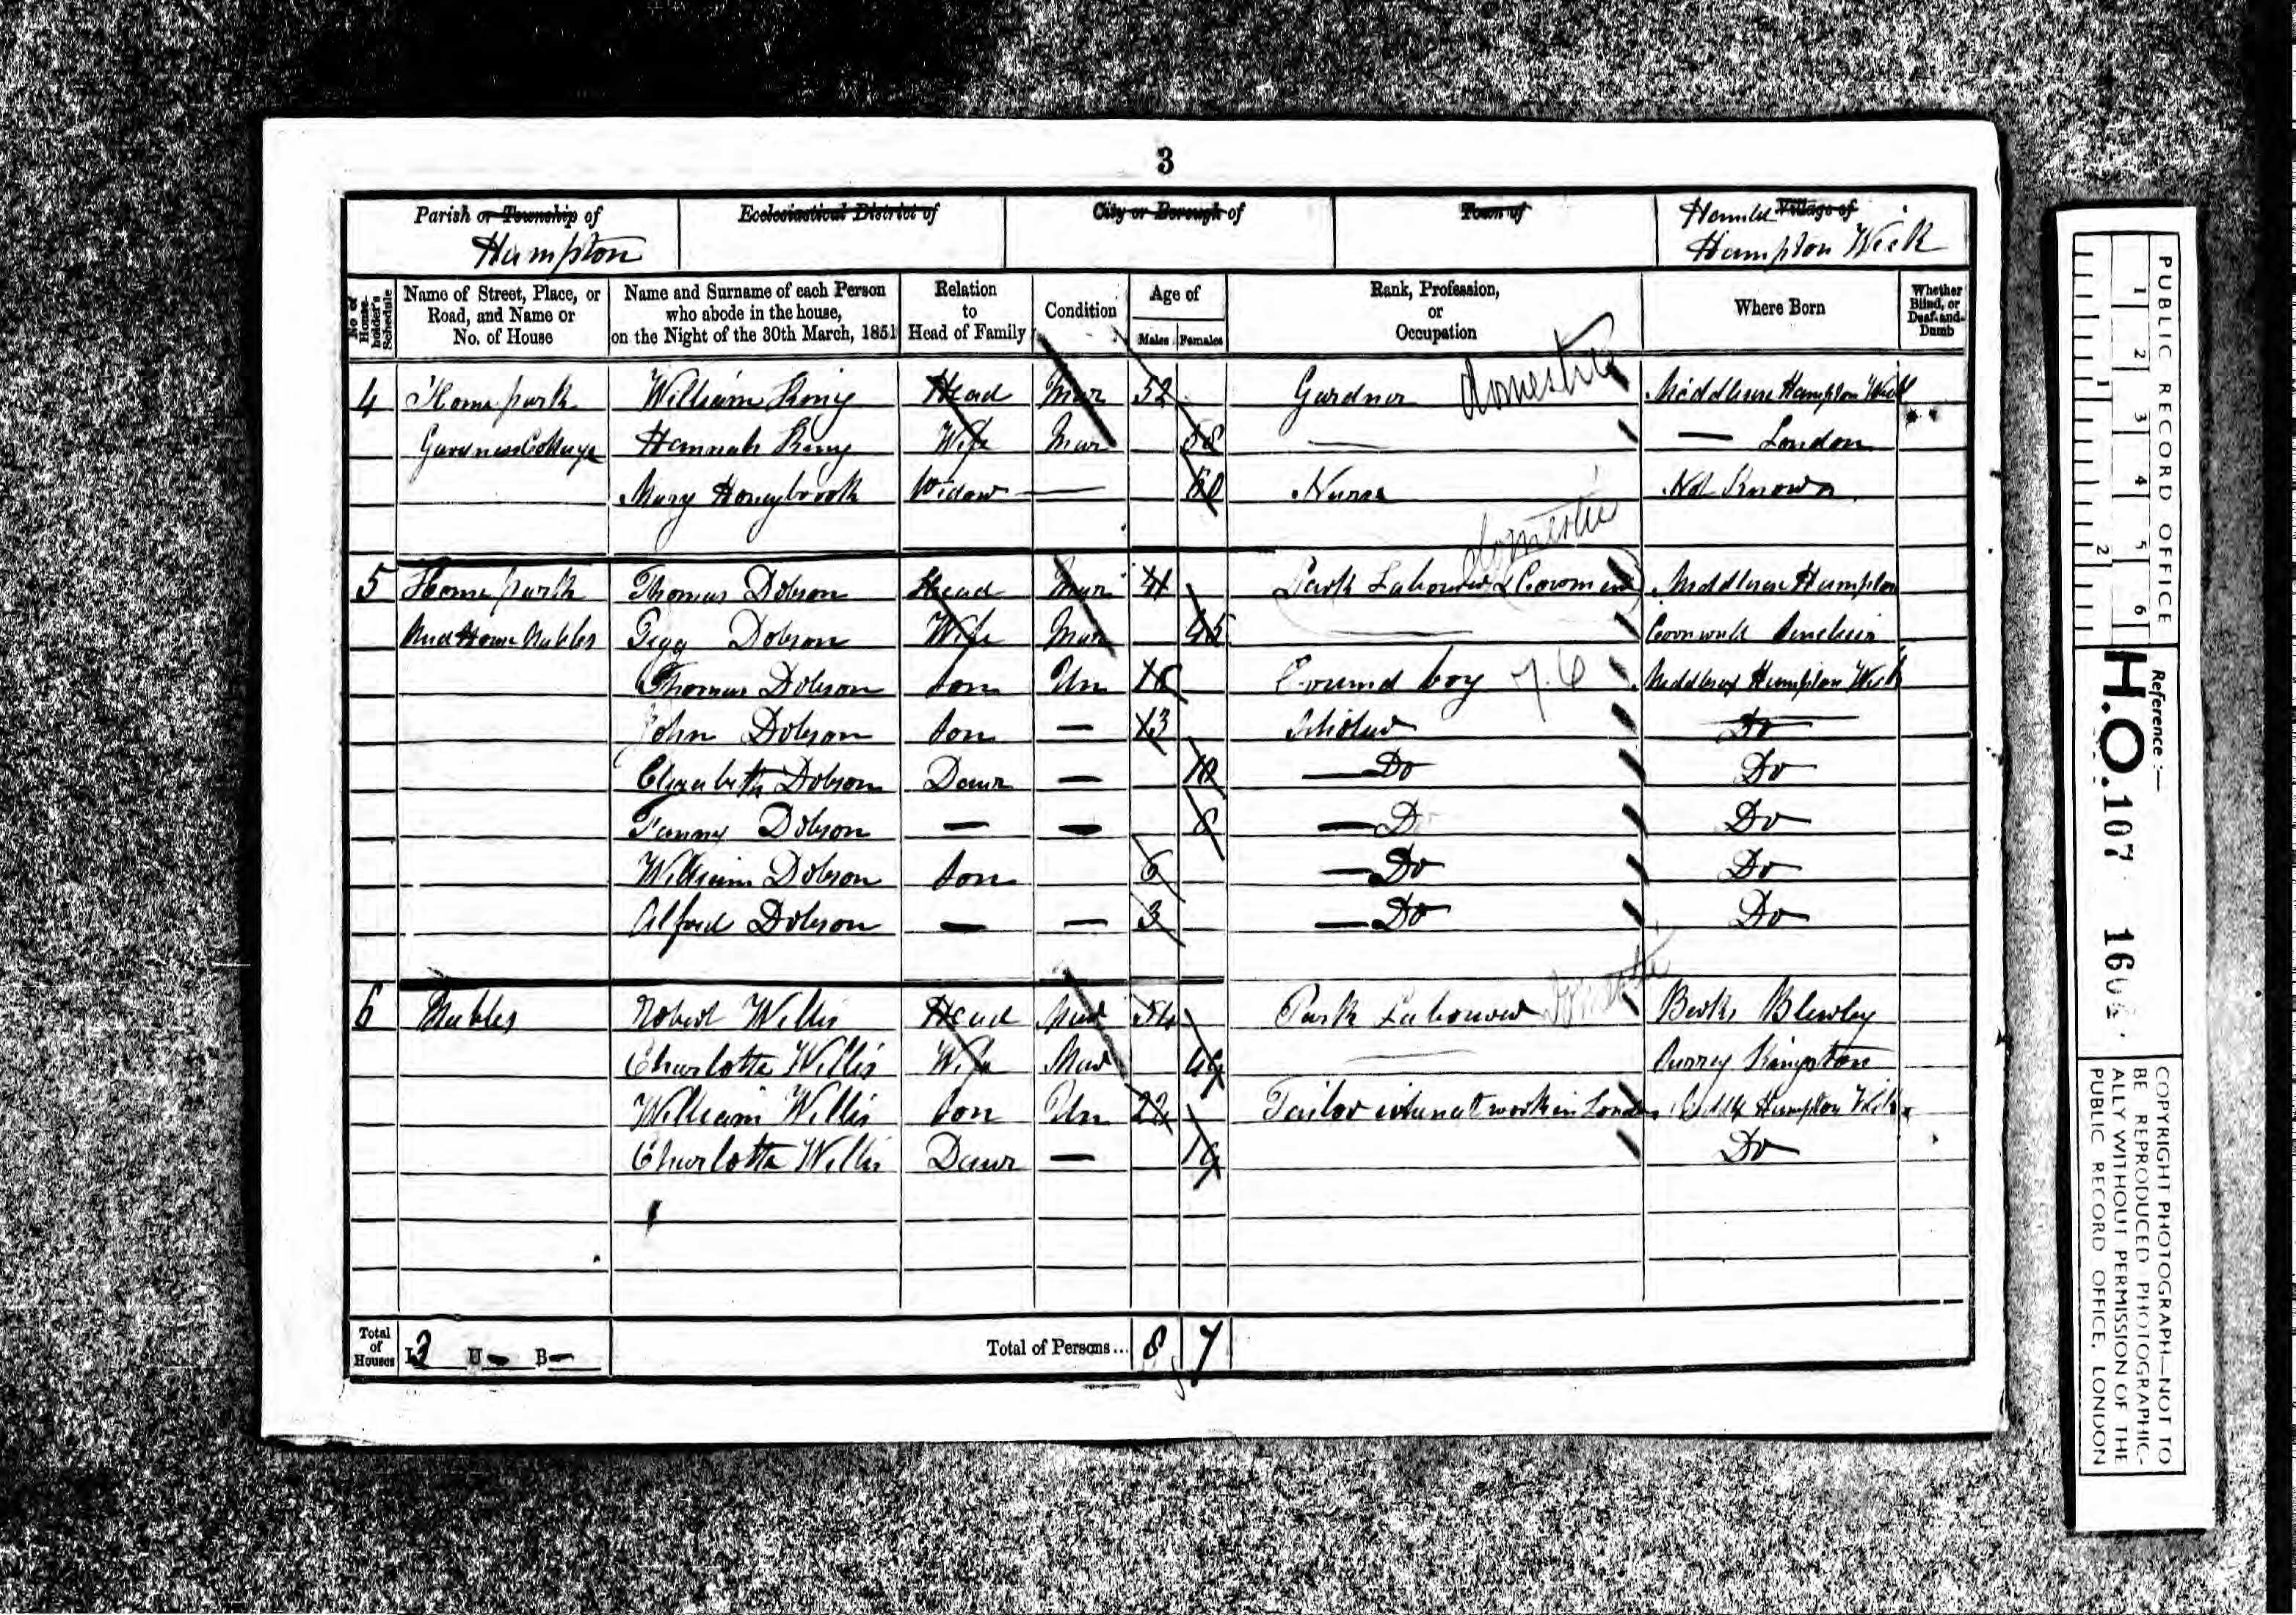 3
Parish or Township of Ecclesiastical District of City or Borough of Town of Hamlet Village of
Hampton Hampton Wick
No. of House-holder's Schedule Name of Street, Place, or Road, and Name or No. of House Name and Surname of each Person who abode in the house, on the Night of the 30th March, 1851 Relation to Head of Family Condition Age of Males Females Rank, Profession, or Occupation Where Born Whether Blind, or Deaf-and-Dumb
4 Home park William King Head Mar 52 Gardner domestic Middlesex Hampton Wick
Gardners Cottage Hannah King Wife Mar 58 — — London
Mary Honeybrook Widow — Nurse Not Known
domestic
5 Home park Thomas Dobson Head Mar 41 Park Labourer & Cowman Middlesex Hampton
Stud House Stables Dobson Wife Mar 45 — Cornwall
Thomas Dobson Son Un boy Middlesex Hampton Wick
John Dobson Son — 13 Scholar Do
Elizabeth Dobson Daur — 10 — Do Do
Fanny Dobson — — 8 — D Do
William Dobson Son 6 — Do Do
Alfred Dobson — — 3 — Do Do
6 Stables Robert Willis Head Mar 54 Park Labourer Domestic Berks Blewley
Charlotte Willis Wife Mar 49 — Surrey Kingston
William Willis Son Un 22 Tailor at work in London Hampton Wick
Charlotte Willis Daur — 19 Do
Total of Houses I 3 U — B — Total of Persons... 8 7
PUBLIC RECORD OFFICE
1 2 3 4 5 6
1 2
Reference :-
H.O. 107
COPYRIGHT PHOTOGRAPH—NOT TO
BE REPRODUCED PHOTOGRAPHIC-
ALLY WITHOUT PERMISSION OF THE
PUBLIC RECORD OFFICE, LONDON